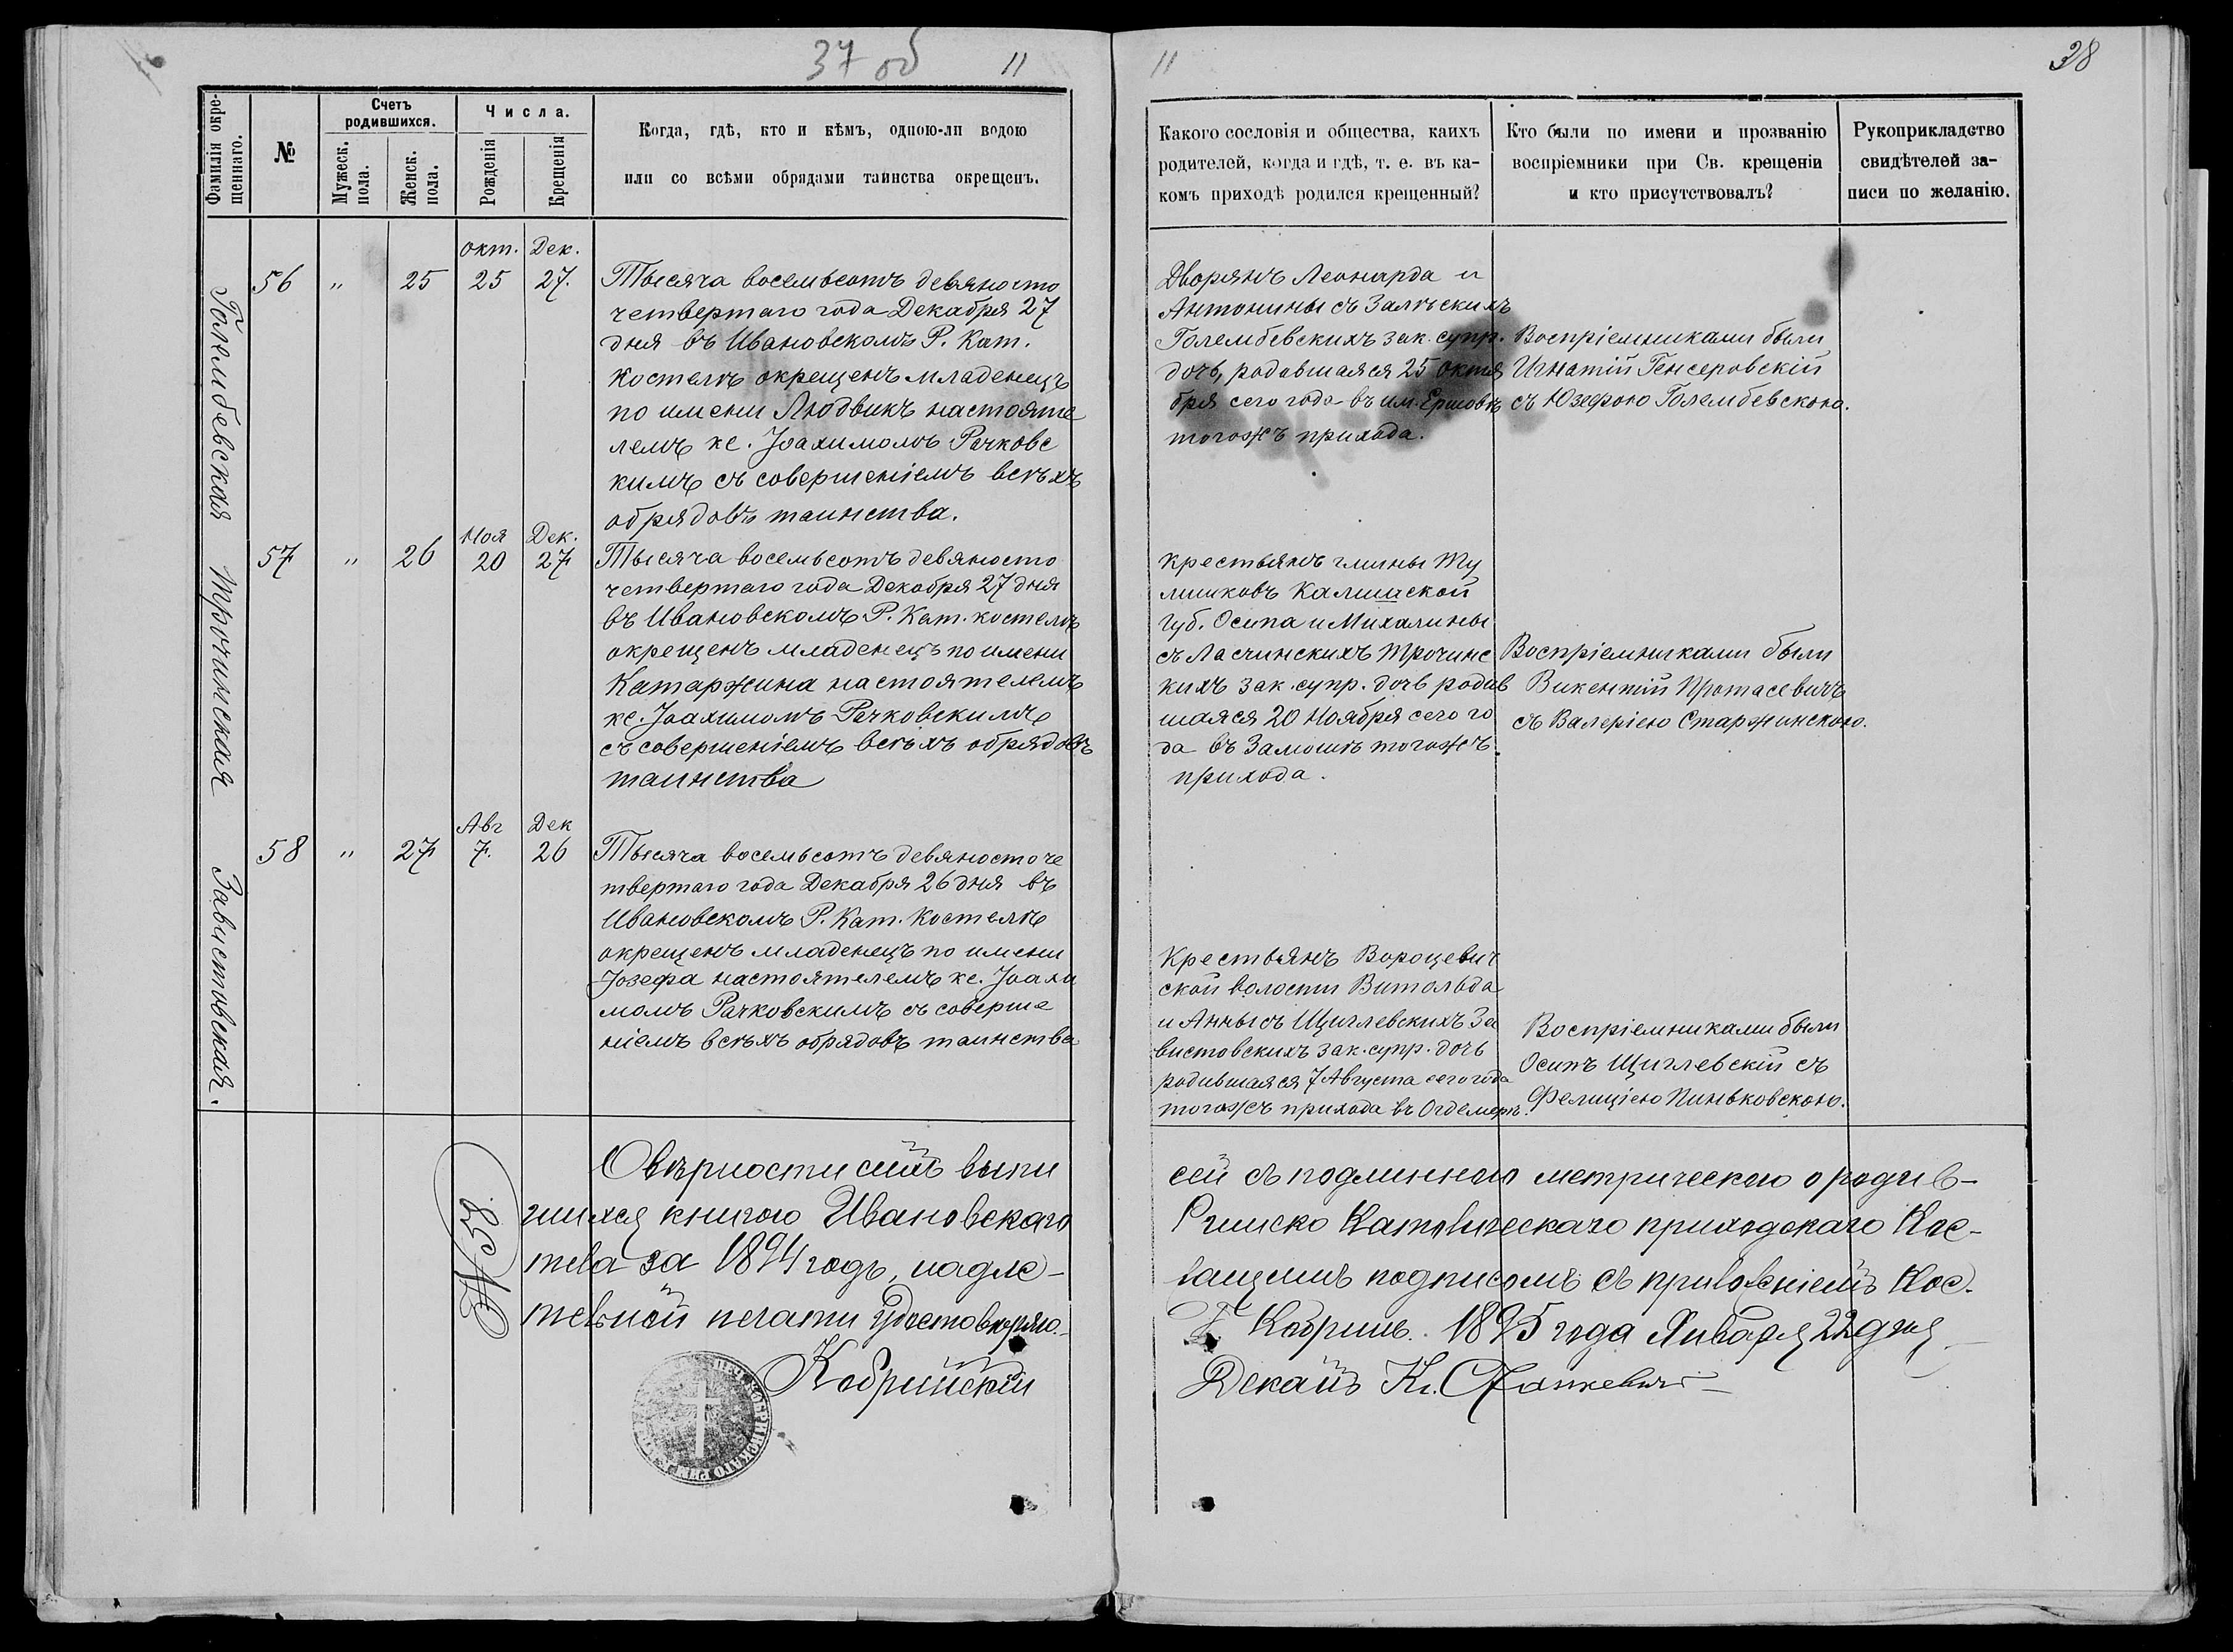 37 об
11
Фамилія окре-
щеннаго.
№
Счетъ
родившихся.
Мужеск.
пола.
Женск.
пола.
Числа.
Рожденія
Крещенія
Когда, гдѣ, кто и кѣмъ, одною-ли водою
или со всѣми обрядами таинства окрещенъ.
Голембевская
56 " 25
Окт. Дек.
25 27.
Тысяча восемьсотъ девяносто
четвертаго года Декабря 27
дня въ Ивановскомъ Р. Кат.
костелѣ окрещенъ младенецъ
по имени Людвикъ настояте
лемъ кс. Іоахимомъ Рачковс
кимъ съ совершеніемъ всѣхъ
обрядовъ таинства.
Трочинская
57 " 26
Ноя Дек.
20 27
Тысяча восемьсотъ девяносто
четвертаго года Декабря 27 дня
въ Ивановскомъ Р. Кат. костелѣ
окрещенъ младенецъ по имени
Катаржина настоятелемъ
кс. Іоахимомъ Рачковскимъ
съ совершеніемъ всѣхъ обрядовъ
таинства
Завистовская.
58 " 27
Авг Дек
7. 26
Тысяча восемьсотъ девяносто че
твертаго года Декабря 26 дня въ
Ивановскомъ Р. Кат. Костелѣ
окрещенъ младенецъ по имени
Іозефа настоятелемъ кс. Іоахи
момъ Рачковскимъ съ соверше
ніемъ всѣхъ обрядовъ таинства
О вѣрности сихъ выпи
шихся книгою Ивановскаго
тела за 1894 годъ, надле-
тельной печати удостовѣряю.
№ 58
Кобринскій
11
38
Какого сословія и общества, каихъ
родителей, когда и гдѣ, т. е. въ ка-
комъ приходѣ родился крещенный?
Кто были по имени и прозванію
воспріемники при Св. крещеніи
и кто присутствовалъ?
Рукоприкладство
свидѣтелей за-
писи по желанію.
Дворянъ Леонарда и
Антонины съ Залѣскихъ
Голембевскихъ зак. супр.
дочь, родившаяся 25 октя
бря сего года въ им. Ершовѣ
тогожъ прихода.
Воспріемниками были
Игнатій Генсеровскій
съ Юзефою Голембевскою.
Крестьянъ гмины Ту
лишковъ Калишской
Губ. Осипа и Михалины
съ Ласчинскихъ Трочинс
кихъ зак. супр. дочь родив
шаяся 20 Ноября сего го
да въ Замошѣ тогожъ
прихода.
Воспріемниками были
Викентій Протасевичъ
съ Валеріею Старжинскою.
Крестьянъ Вороцевич
ской волости Витольда
и Анны съ Щиглевскихъ За
вистовскихъ зак. супр. дочь
родившаяся 7 Августа сего года
тогожъ прихода въ Огдемерѣ.
Воспріемниками были
Осипъ Щиглевскій съ
Фелиціею Пиньковскою.
сей съ подлинною метрическою о родив-
Римско Католическаго приходскаго Кос-
жащимъ подписомъ съ приложеніемъ Кос.
Г. Кобринъ. 1895 года Января 22 дня
Деканъ Кс.